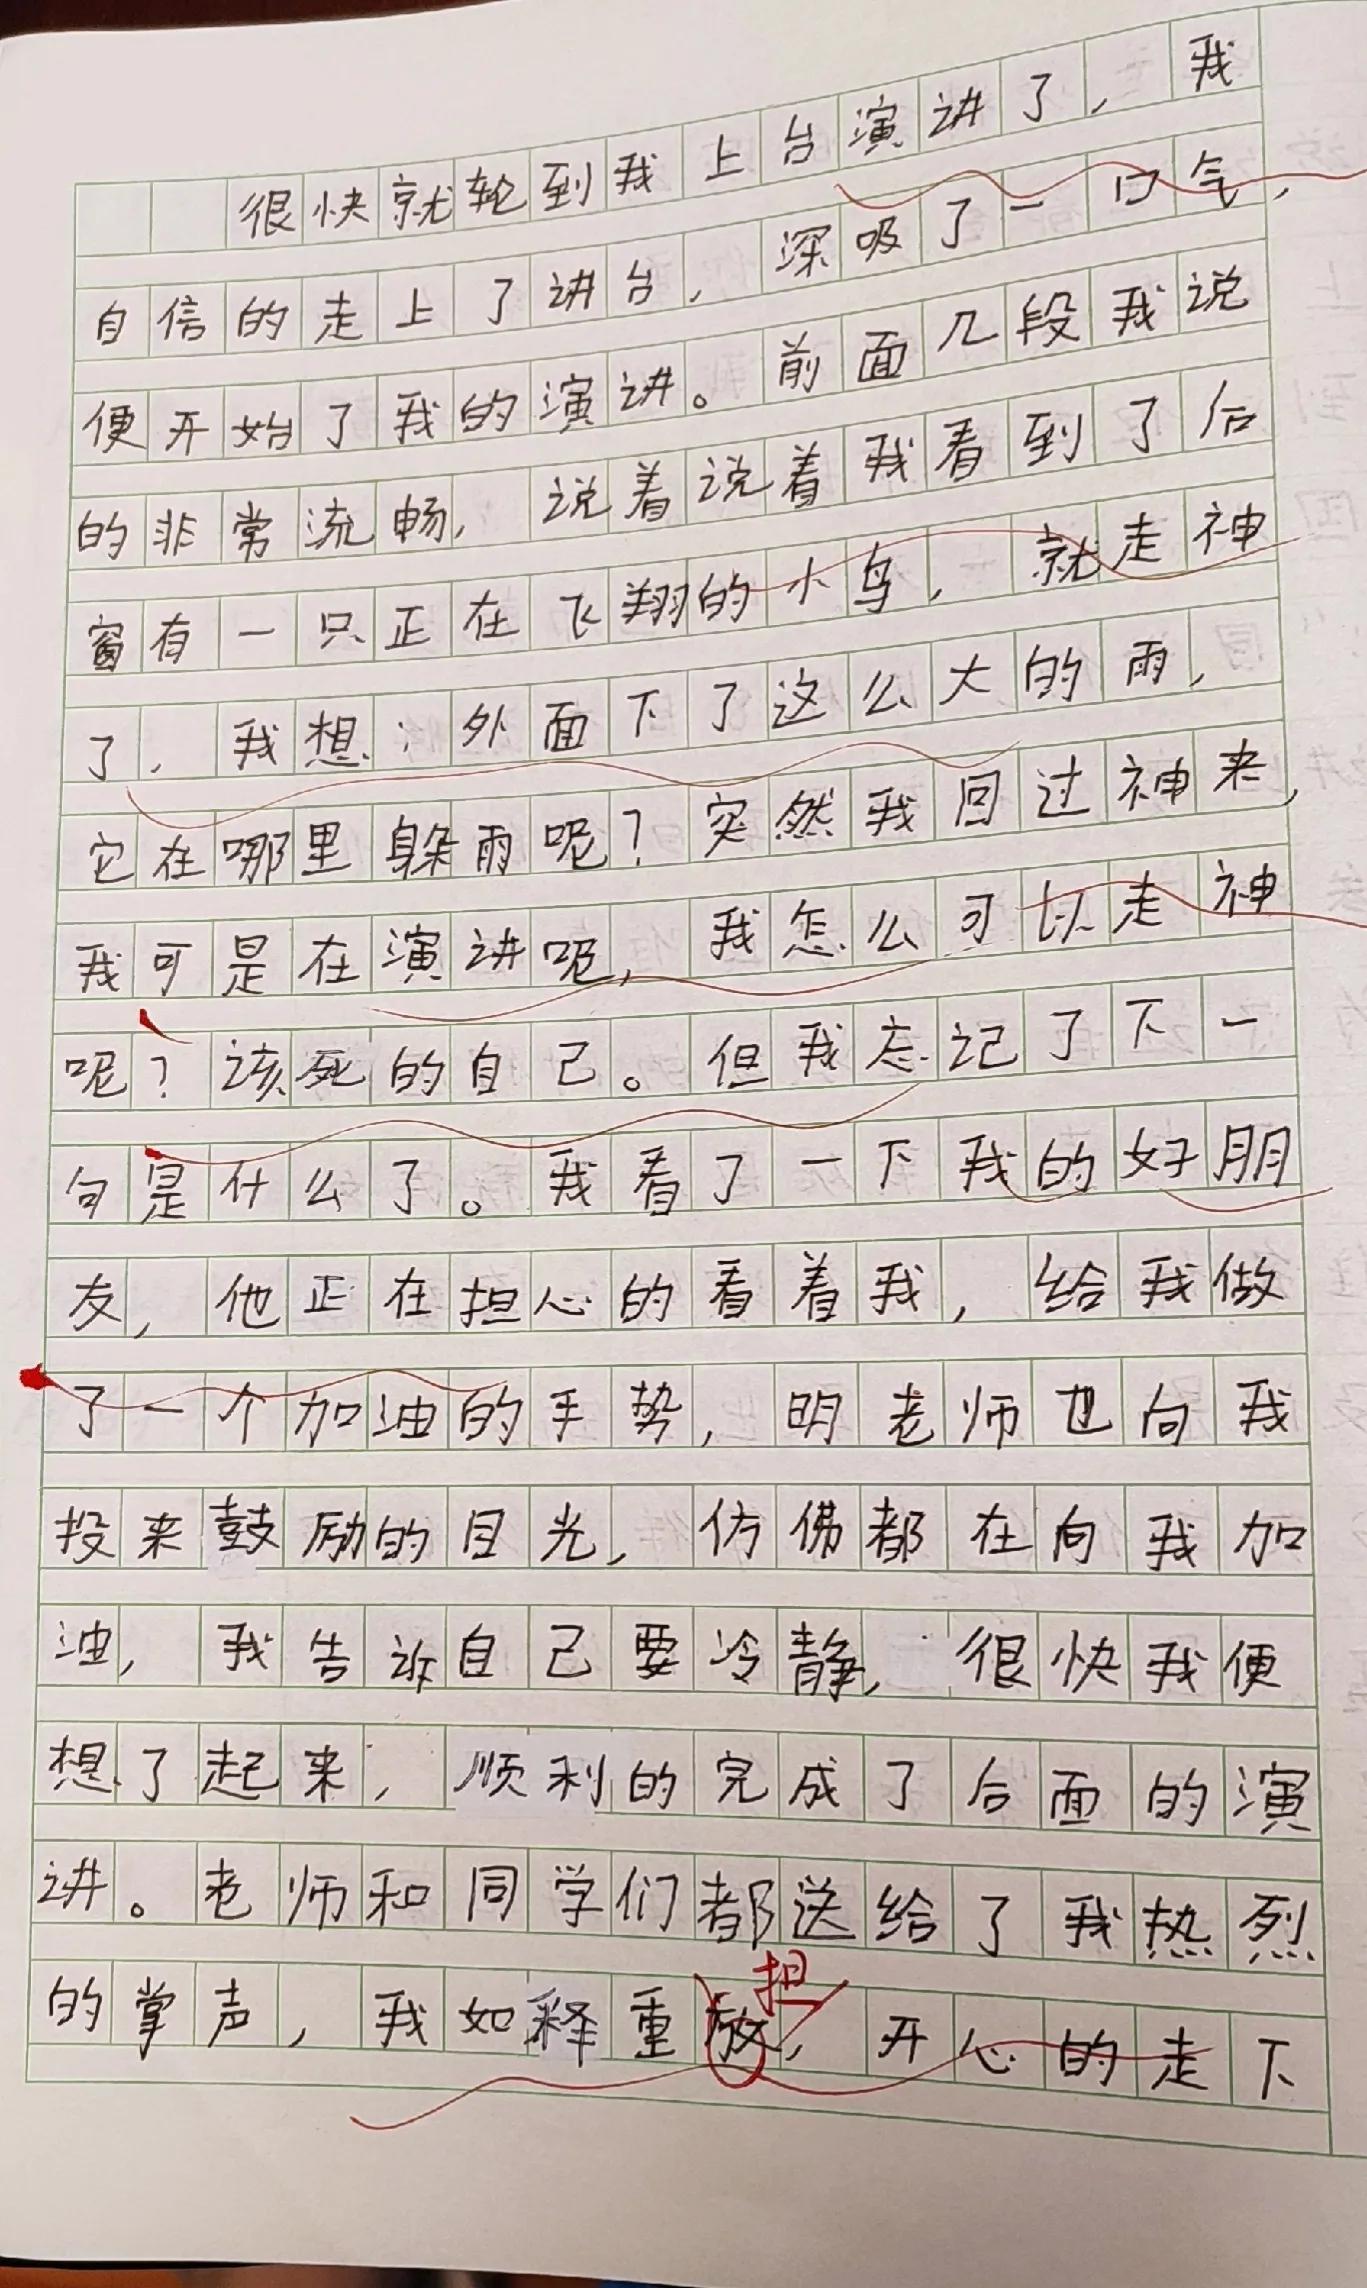 很快就轮到我上台演讲了，我
自信的走上了讲台，深吸了一口气，
便开始了我的演讲。前面几段我说
的非常流畅，说着说着我看到了后
窗有一只正在飞翔的小鸟，就走神
了，我想：外面下了这么大的雨，
它在哪里躲雨呢？突然我回过神来，
我可是在演讲呢，我怎么可以走神
呢？该死的自己。但我忘记了下一
句是什么了。我看了一下我的好朋
友，他正在担心的看着我，给我做
了一个加油的手势，明老师也向我
投来鼓励的目光，仿佛都在向我加
油，我告诉自己要冷静，很快我便
想了起来，顺利的完成了后面的演
讲。老师和同学们都送给了我热烈
担
的掌声，我如释重放，开心的走下